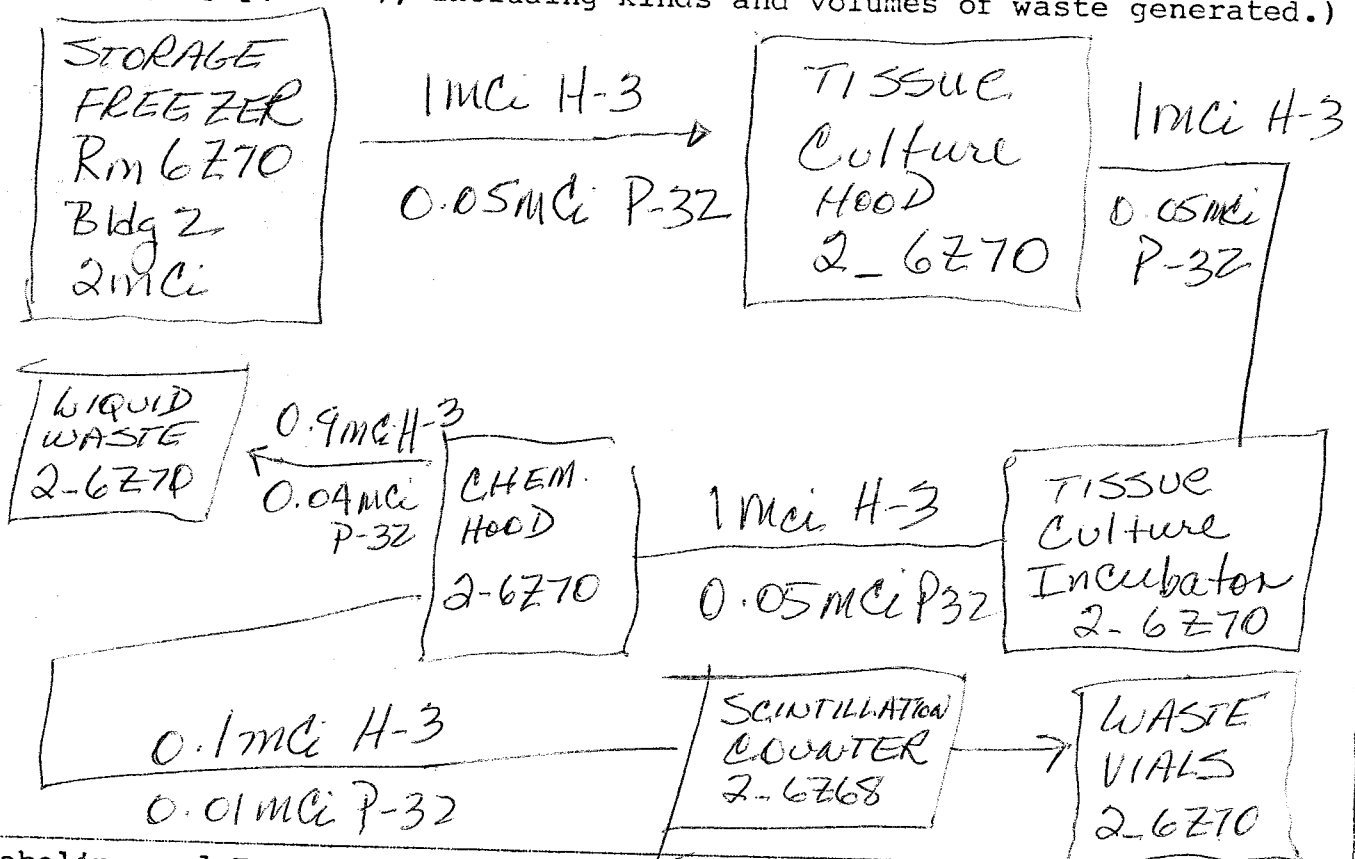 including kinds and volumes of waste generated.)
STORAGE
FREEZER
Rm 6Z70
Bldg 2
2mCi
1mCi H-3
0.05mCi P-32
TISSUE
Culture
HOOD
2_6Z70
1mCi H-3
0.05mCi
P-32
TISSUE
Culture
Incubator
2-6Z70
1mci H-3
0.05mCi P32
CHEM.
HOOD
2-6Z70
0.9mCi H-3
0.04mCi
P-32
LIQUID
WASTE
2-6Z70
0.1mCi H-3
0.01mCi P-32
SCINTILLATION
COUNTER
2-6Z68
WASTE
VIALS
2_6Z70